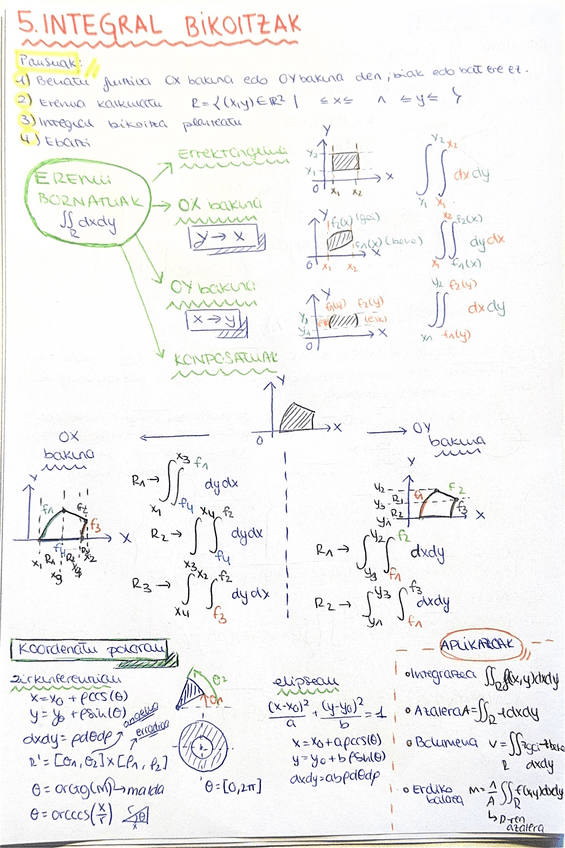 5. INTEGRAL BIKOITZAK
Pausuak:
1) Begiratu funtzioa OX bakuna edo OY bakuna den, biak edo bat ere ez.
2) Eremua kalkulatu R = {(x,y) ∈ ℝ² | ≤ x ≤ ∧ ≤ y ≤ }
3) Integral bikoitza planteatu
4) Ebatzi
EREMU
BORNATUAK
∬_R dxdy
Errektangelua
∫_{y₁}^{y₂} ∫_{x₁}^{x₂} dxdy
OX bakuna
y → x
f₂(x) (goi)
f₁(x) (behe)
∫_{x₁}^{x₂} ∫_{f₁(x)}^{f₂(x)} dydx
OY bakuna
x → y
f₁(y) f₂(y)
∫_{x₁}^{y₂} ∫_{f₁(y)}^{f₂(y)} dxdy
KONPOSATUAK
OX
bakuna
OY
bakuna
R₁ → ∫_{x₁}^{x₃} ∫_{f₄}^{f₁} dydx
R₂ → ∫_{x₃}^{x₄} ∫_{f₄}^{f₂} dydx
R₃ → ∫_{x₄}^{x₂} ∫_{f₃}^{f₂} dydx
R₁ → ∫_{y₃}^{y₂} ∫_{f₁}^{f₂} dxdy
R₂ → ∫_{y₁}^{y₃} ∫_{f₁}^{f₃} dxdy
Koordenatu polarrak
zirkunferentzian
x = x₀ + ρcos(θ)
y = y₀ + ρsin(θ)
dxdy = ρdθdρ
angelua
erradioa
R' = [θ₁, θ₂] x [ρ₁, ρ₂]
θ = arctg(m) → malda
θ = arccos(x/r)
θ = [0, 2π]
elipsean
(x-x₀)²/a + (y-y₀)²/b = 1
x = x₀ + aρcos(θ)
y = y₀ + bρsin(θ)
dxdy = abρdθdρ
APLIKAZIOAK
• Integrazioa ∬_R f(x,y)dxdy
• Azalera A = ∬_R 1dxdy
• Bolumena V = ∬_R goi-behe dxdy
• Erdiko balioa M = 1/A ∬_R f(x,y)dxdy
↳ R-ren azalera